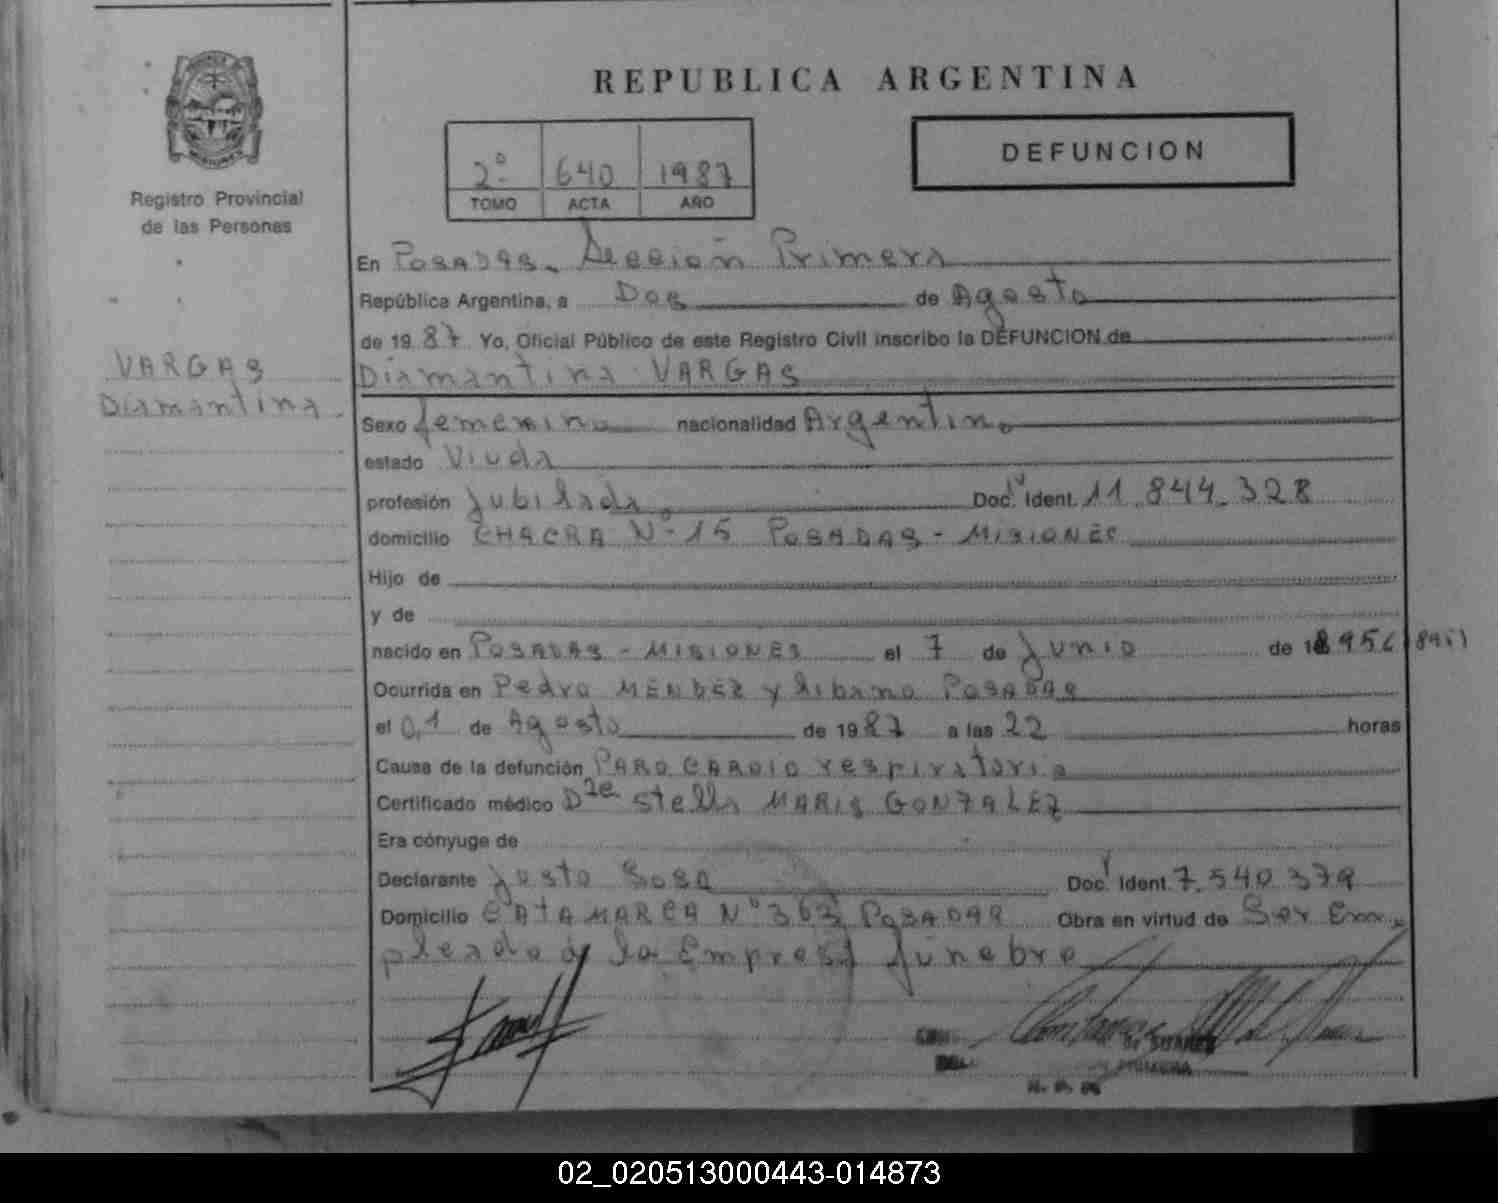 REPUBLICA ARGENTINA
DEFUNCION
2º 640 1987
TOMO ACTA AÑO
Registro Provincial
de las Personas
VARGAS
Diamantina.
En POSADAS. Sección Primera
República Argentina, a Dos de Agosto
de 1987 Yo, Oficial Público de este Registro Civil inscribo la DEFUNCION de
Diamantina VARGAS
Sexo femenino nacionalidad Argentina
estado Viuda
profesión Jubilada Doc. Ident. 11.844.328
domicilio CHACRA Nº 15 POSADAS - MISIONES
Hijo de
y de
nacido en POSADAS - MISIONES el 7 de Junio de 1895
Ocurrida en Pedro MENDEZ y Libano POSADAS
el 01 de Agosto de 1987 a las 22 horas
Causa de la defunción PARO CARDIO respiratorio
Certificado médico Dra Stella MARIS GONZALEZ
Era cónyuge de
Declarante Justo SOSA Doc. Ident. 7.540.379
Domicilio CATAMARCA Nº 363 POSADAS Obra en virtud de Ser Em
pleado de la Empresa fúnebre
PRIMERA
02_020513000443-014873